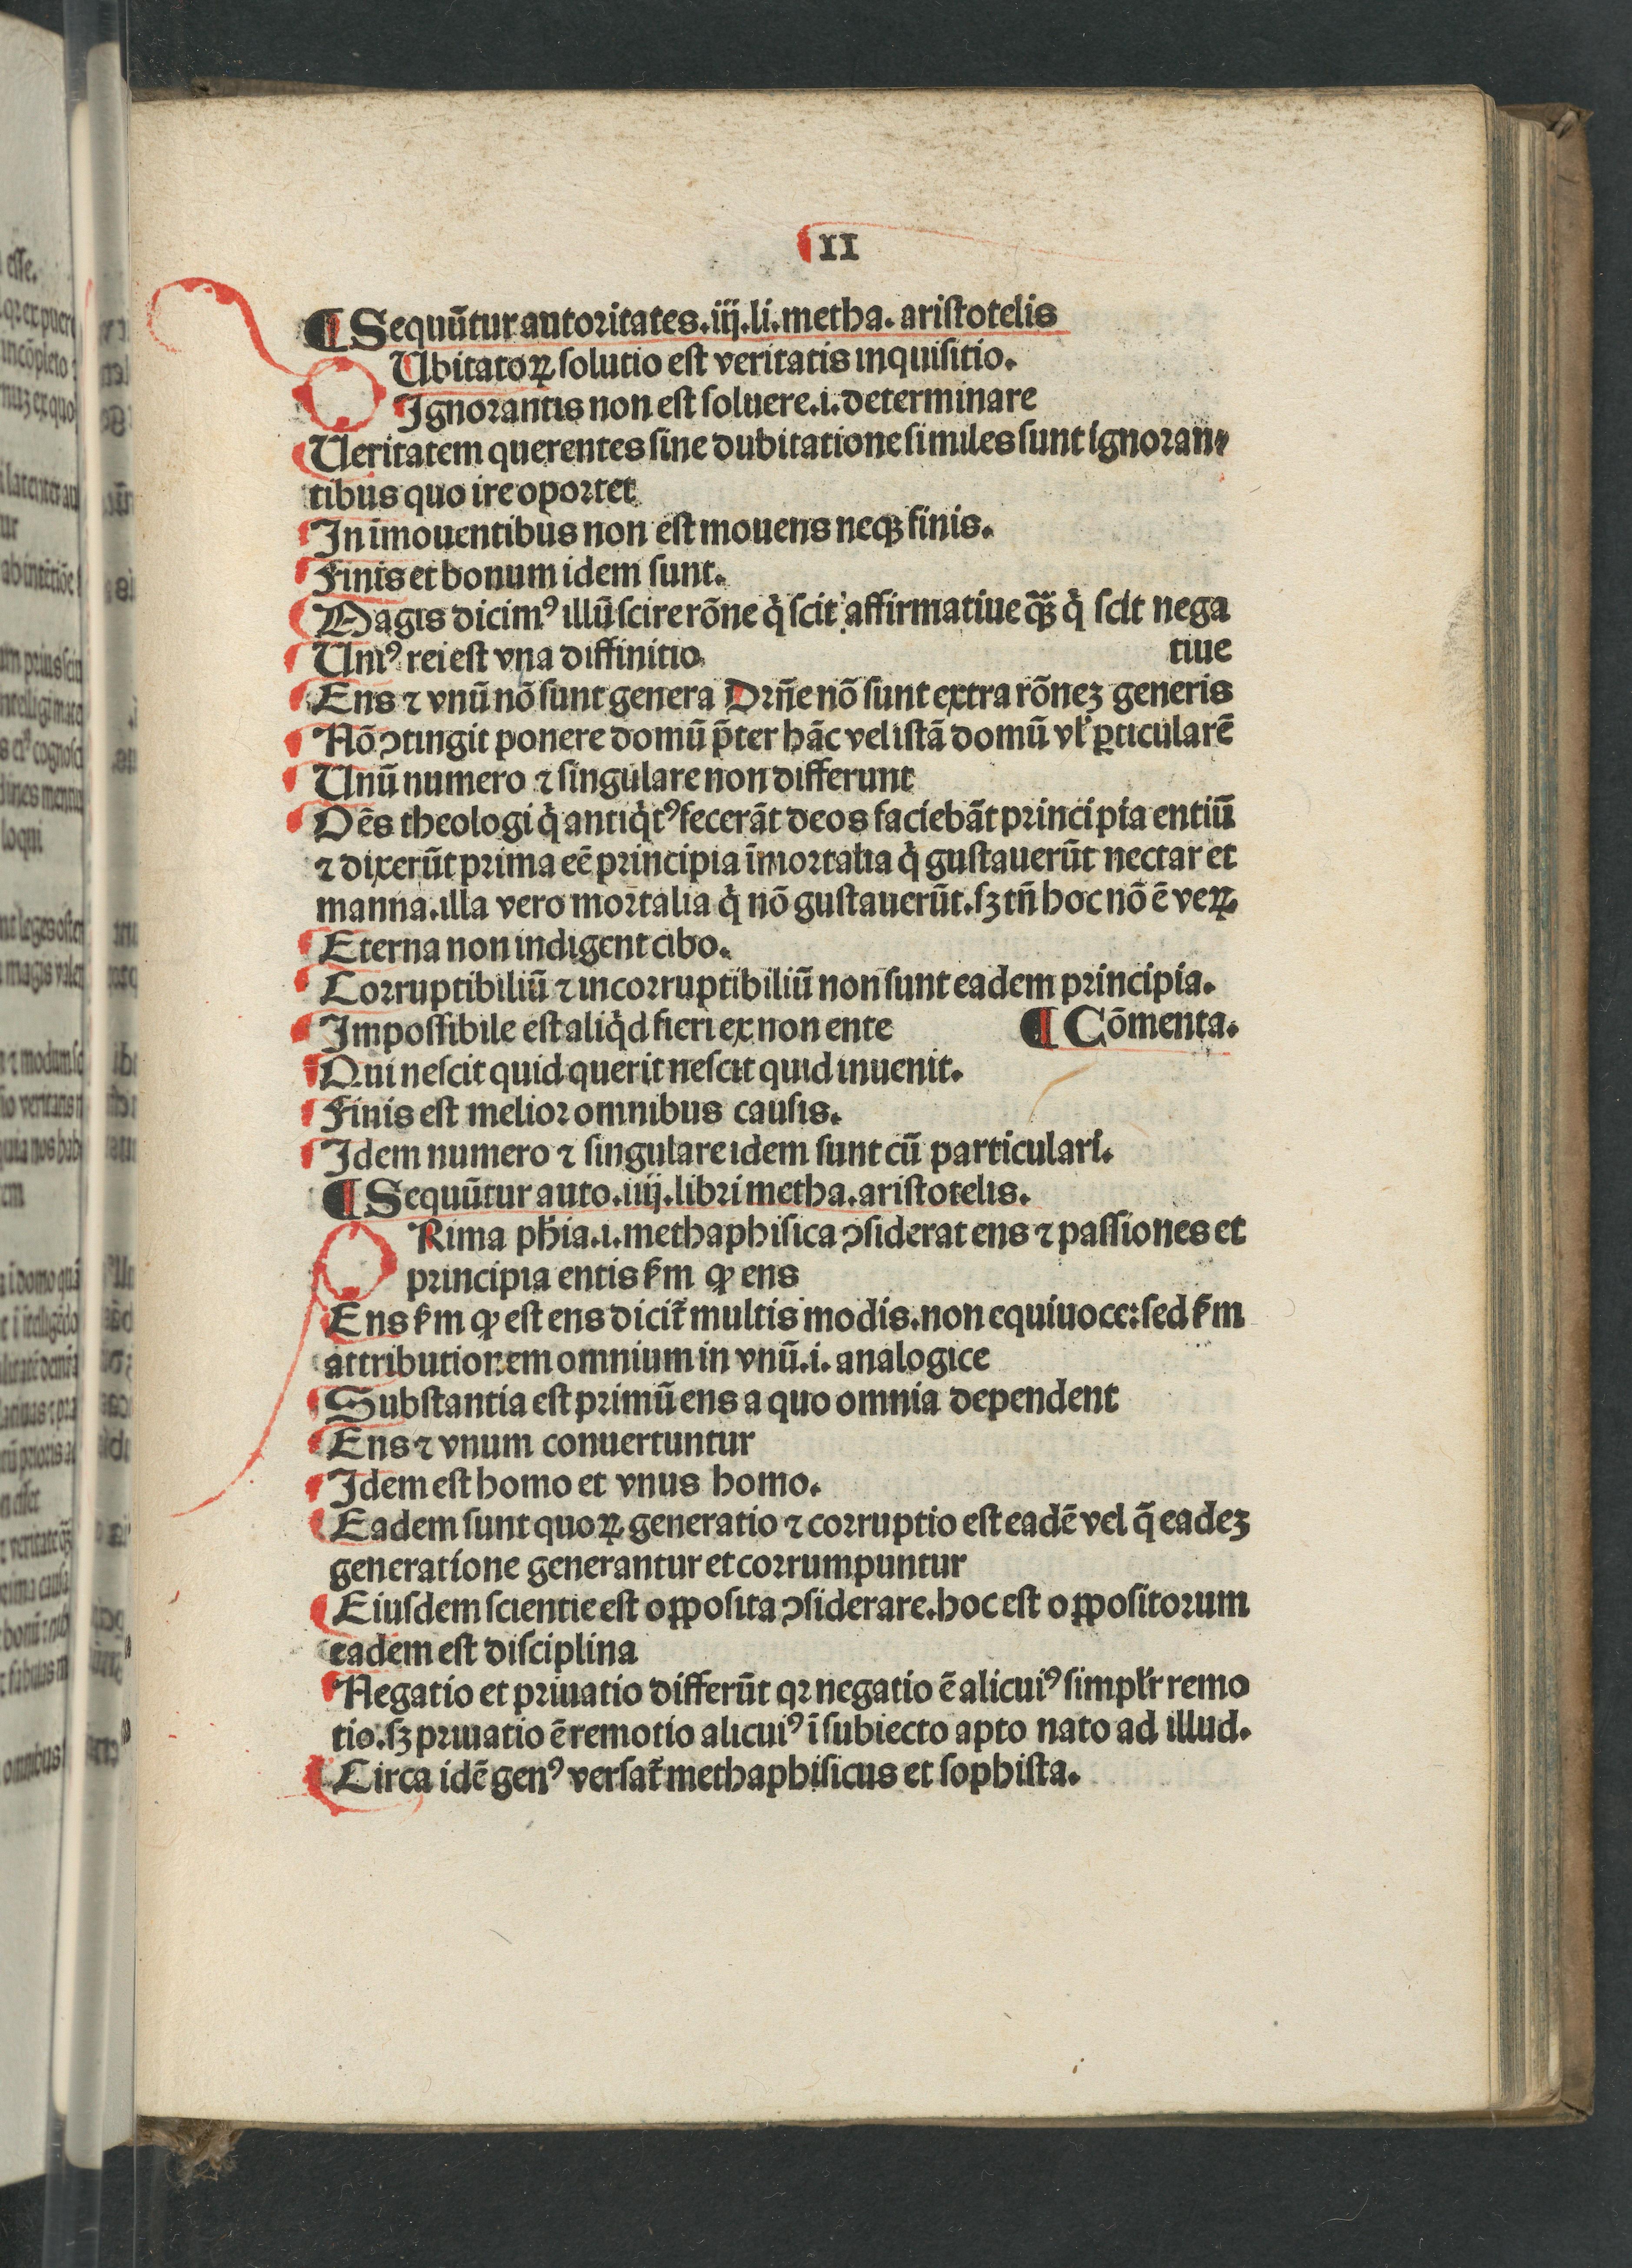 II
¶ Sequūtur autoritates.iij.li.metha.aristotelis
DUbitatoꝝ solutio est veritatis inquisitio.
Ignorantis non est soluere.i.determinare
Ueritatem querentes sine dubitatione similes sunt ignoran⸗
tibus quo ire oportet
In imouentibus non est mouens neqꝫ finis.
Finis et bonum idem sunt.
Magis dicimꝰ illū scire rōne q̇ scit affirmatiue q̄ꝫ q̇ scit nega
Uniꝰ rei est vna diffinitio. tiue
Ens ⁊ vnū nō sunt genera Dr̄ne nō sunt extra rōneꝫ generis
Nō ꝯtingit ponere domū p̄ter hāc vel istā domū vl̓ ꝑticularē
Unū numero ⁊ singulare non differunt
Oēs theologi q̇ antiq̇tꝰ fecerāt deos faciebāt principia entiū
⁊ dixerūt prima eē principia īmortalia q̇ gustauerūt nectar et
manna.illa vero mortalia q̇ nō gustauerūt.sꝫ tn̄ hoc nō ē veꝝ
Eterna non indigent cibo.
Corruptibiliū ⁊ incorruptibiliū non sunt eadem principia.
Impossibile est aliq̇d fieri ex non ente ¶ Cōmenta.
Qui nescit quid querit nescit quid inuenit.
Finis est melior omnibus causis.
Idem numero ⁊ singulare idem sunt cū particulari.
¶ Sequūtur auto.iiij.libri metha.aristotelis.
PRima ph̄ia.i.methaphisica ꝯsiderat ens ⁊ passiones et
principia entis ẜm ꝙ ens
Ens ẜm ꝙ est ens dicit᷑ multis modis.non equiuoce:sed ẜm
attributionem omnium in vnū.i.analogice
Substantia est primū ens a quo omnia dependent
Ens ⁊ vnum conuertuntur
Idem est homo et vnus homo.
Eadem sunt quoꝝ generatio ⁊ corruptio est eadē vel q̄ eadeꝫ
generatione generantur et corrumpuntur
Eiusdem scientie est opposita ꝯsiderare.hoc est oppositorum
eadem est disciplina
Negatio et priuatio differūt qꝛ negatio ē alicuiꝰ simpl̓r remo
tio.sꝫ priuatio ē remotio alicuiꝰ ī subiecto apto nato ad illud.
Circa idē genꝰ versat᷑ methaphisicus et sophista.